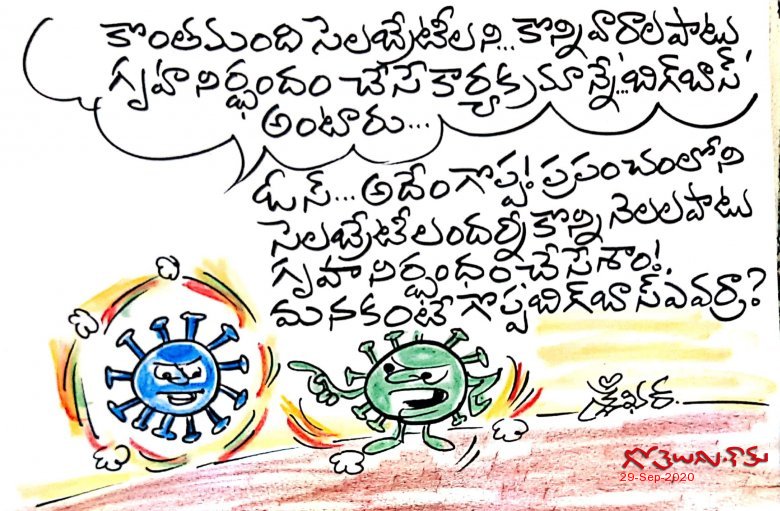 కొంతమంది సెలబ్రేటీలని... కొన్ని వారాలపాటు
గృహ నిర్భందం చేసే కార్యక్రమాన్నే... బిగ్ బాస్
అంటారు...
ఓస్... అదేం గొప్ప! ప్రపంచంలోని
సెలబ్రేటీలందర్నీ కొన్ని నెలలపాటు
గృహ నిర్భంధం చేసేశాం!.
మనకంటే గొప్ప బిగ్ బాస్ ఎవర్రా?
శేఖర్.
గోతెలుగు.కామ్
29-Sep-2020